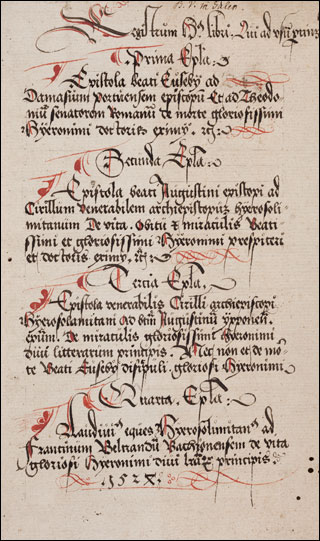 Registrum H' libri. Qui ad usum
Prima Epla:
Epistola beati Eusebij ad
Damasium portuensem episcopum Et ad Theodo
niu senatorem Romanu de morte gloriosissimi
Hyeronimi doctoris eximij. rc
Secunda Epla:
Epistola beati Augustini episcopi ad
Cirillum venerabilem archiepiscopum hyerosoli
mitanum De vita. Obitu et miraculis Beati
ssimi et gloriosissimi Hyeronimi prespiteri
et doctoris eximij. rc
Tercia Epla.
Epistola venerabilis Cirilli archiepiscopi
Hyerosolamitani Ad btm Augustinu ypponen.
epium. De miraculis gloriosissimi Hyeronimi
diui litterarum principis. Nec non et de mo-
te Beati Eusebij discipuli gloriosi Hyeronimi
Quarta. Epla:
eques Hyerosolimitan ad
Beltrandu de vita
gloriosi Hyeronimi diui principis.